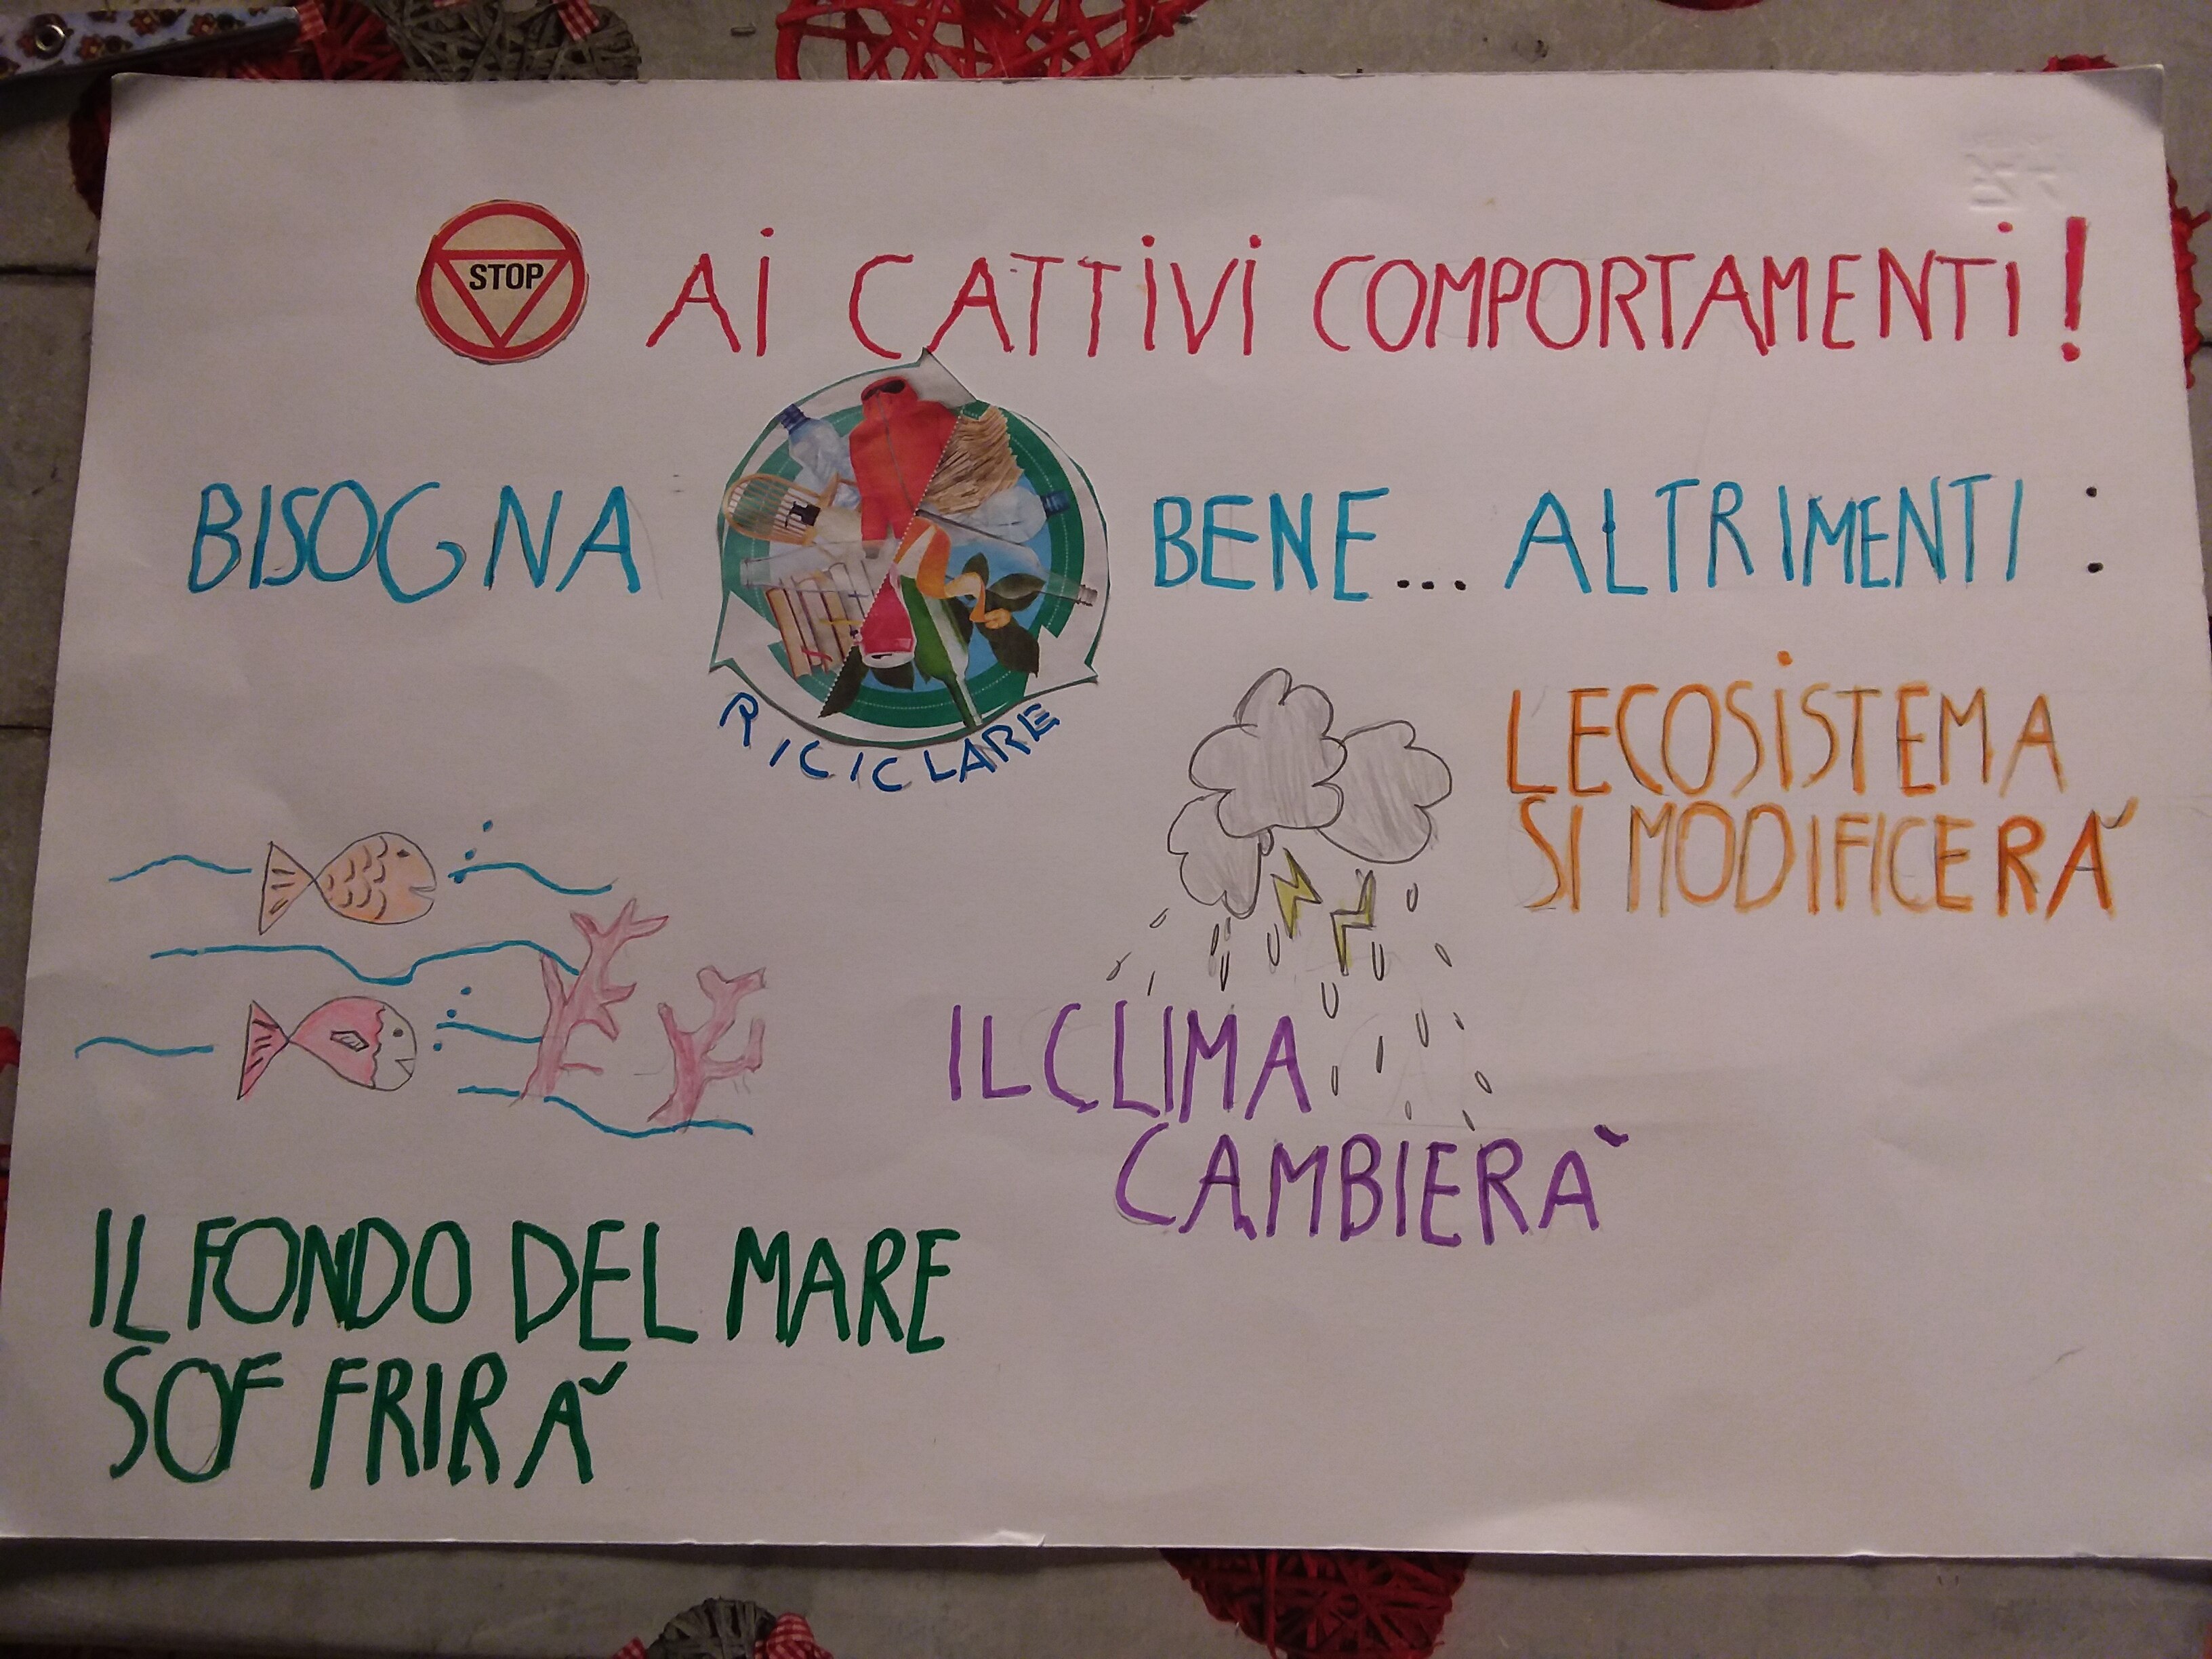 STOP Ai CATTiVi COMPORTAMENTi!
BISOGNA RICICLARE BENE... ALTRIMENTI :
L'ECOSiSTEMA
SI MODIFICERÀ
IL CLIMA
CAMBIERÀ
IL FONDO DEL MARE
SOFFRIRÀ